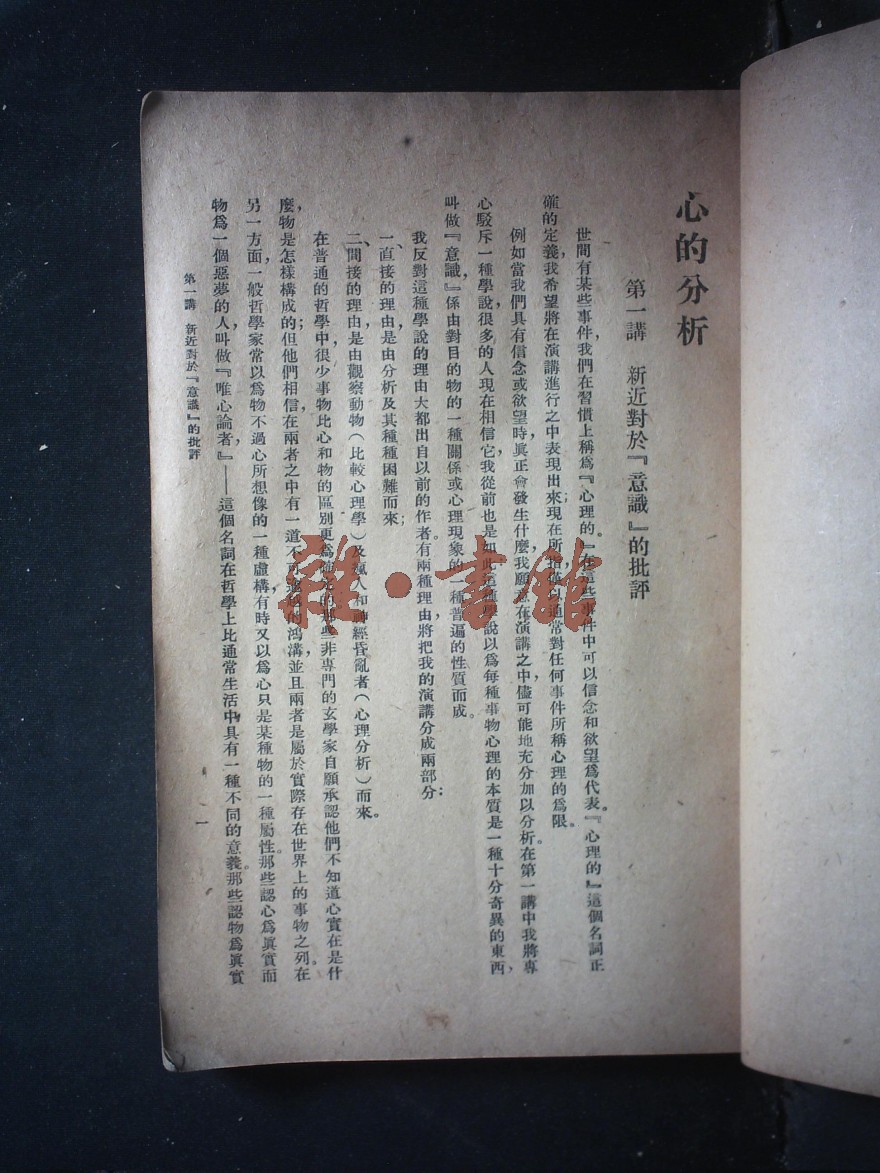 心的分析
第一講　新近對於『意識』的批評
世間有某些事件，我們在習慣上稱爲『心理的。』在這些事件中可以信念和欲望爲代表。『心理的』這個名詞正
確的定義，我希望將在演講進行之中表現出來；現在所指僅以通常對任何事件所稱心理的爲限。
例如當我們具有信念或欲望時，眞正會發生什麼，我願意在演講之中儘可能地充分加以分析。在第一講中我將專
心駁斥一種學說，很多的人現在相信它，我從前也是如此：這種學說以爲每種事物心理的本質是一種十分奇異的東西，
叫做『意識，』係由對目的物的一種關係或心理現象的一種普遍的性質而成。
我反對這種學說的理由大都出自以前的作者。有兩種理由，將把我的演講分成兩部分：
一、直接的理由，是由分析及其種種困難而來；
二、間接的理由，是由觀察動物（比較心理學）及瘋人和神經昏亂者（心理分析）而來。
在普通的哲學中，很少事物比心和物的區別更爲確定的。那些非專門的玄學家自願承認他們不知道心實在是什
麼，物是怎樣構成的；但他們相信在兩者之中有一道不可逾越的鴻溝，並且兩者是屬於實際存在世界上的事物之列。在
另一方面，一般哲學家常以爲物不過心所想像的一種虛構，有時又以爲心只是某種物的一種屬性。那些認心爲眞實而
物爲一個惡夢的人，叫做『唯心論者』——這個名詞在哲學上比通常生活中具有一種不同的意義。那些認物爲眞實
第一講　新近對於『意識』的批評
一
雜·書館